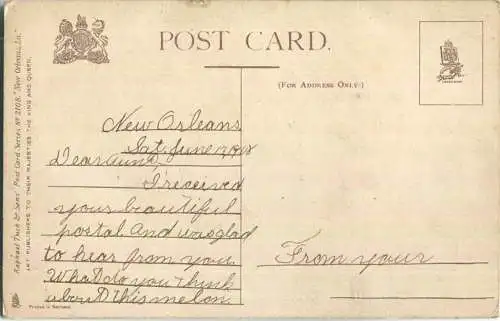 POST CARD.
(FOR ADDRESS ONLY.)
Raphael Tuck & Sons' Post Card Series No 2108. "New Orleans, La."
ART PUBLISHERS TO THEIR MAJESTIES THE KING AND QUEEN.
New Orleans
Sat. June
Dear Aunt,
I received
your beautiful
postal and was glad
to hear from you.
What do you think
about this melon.
From your